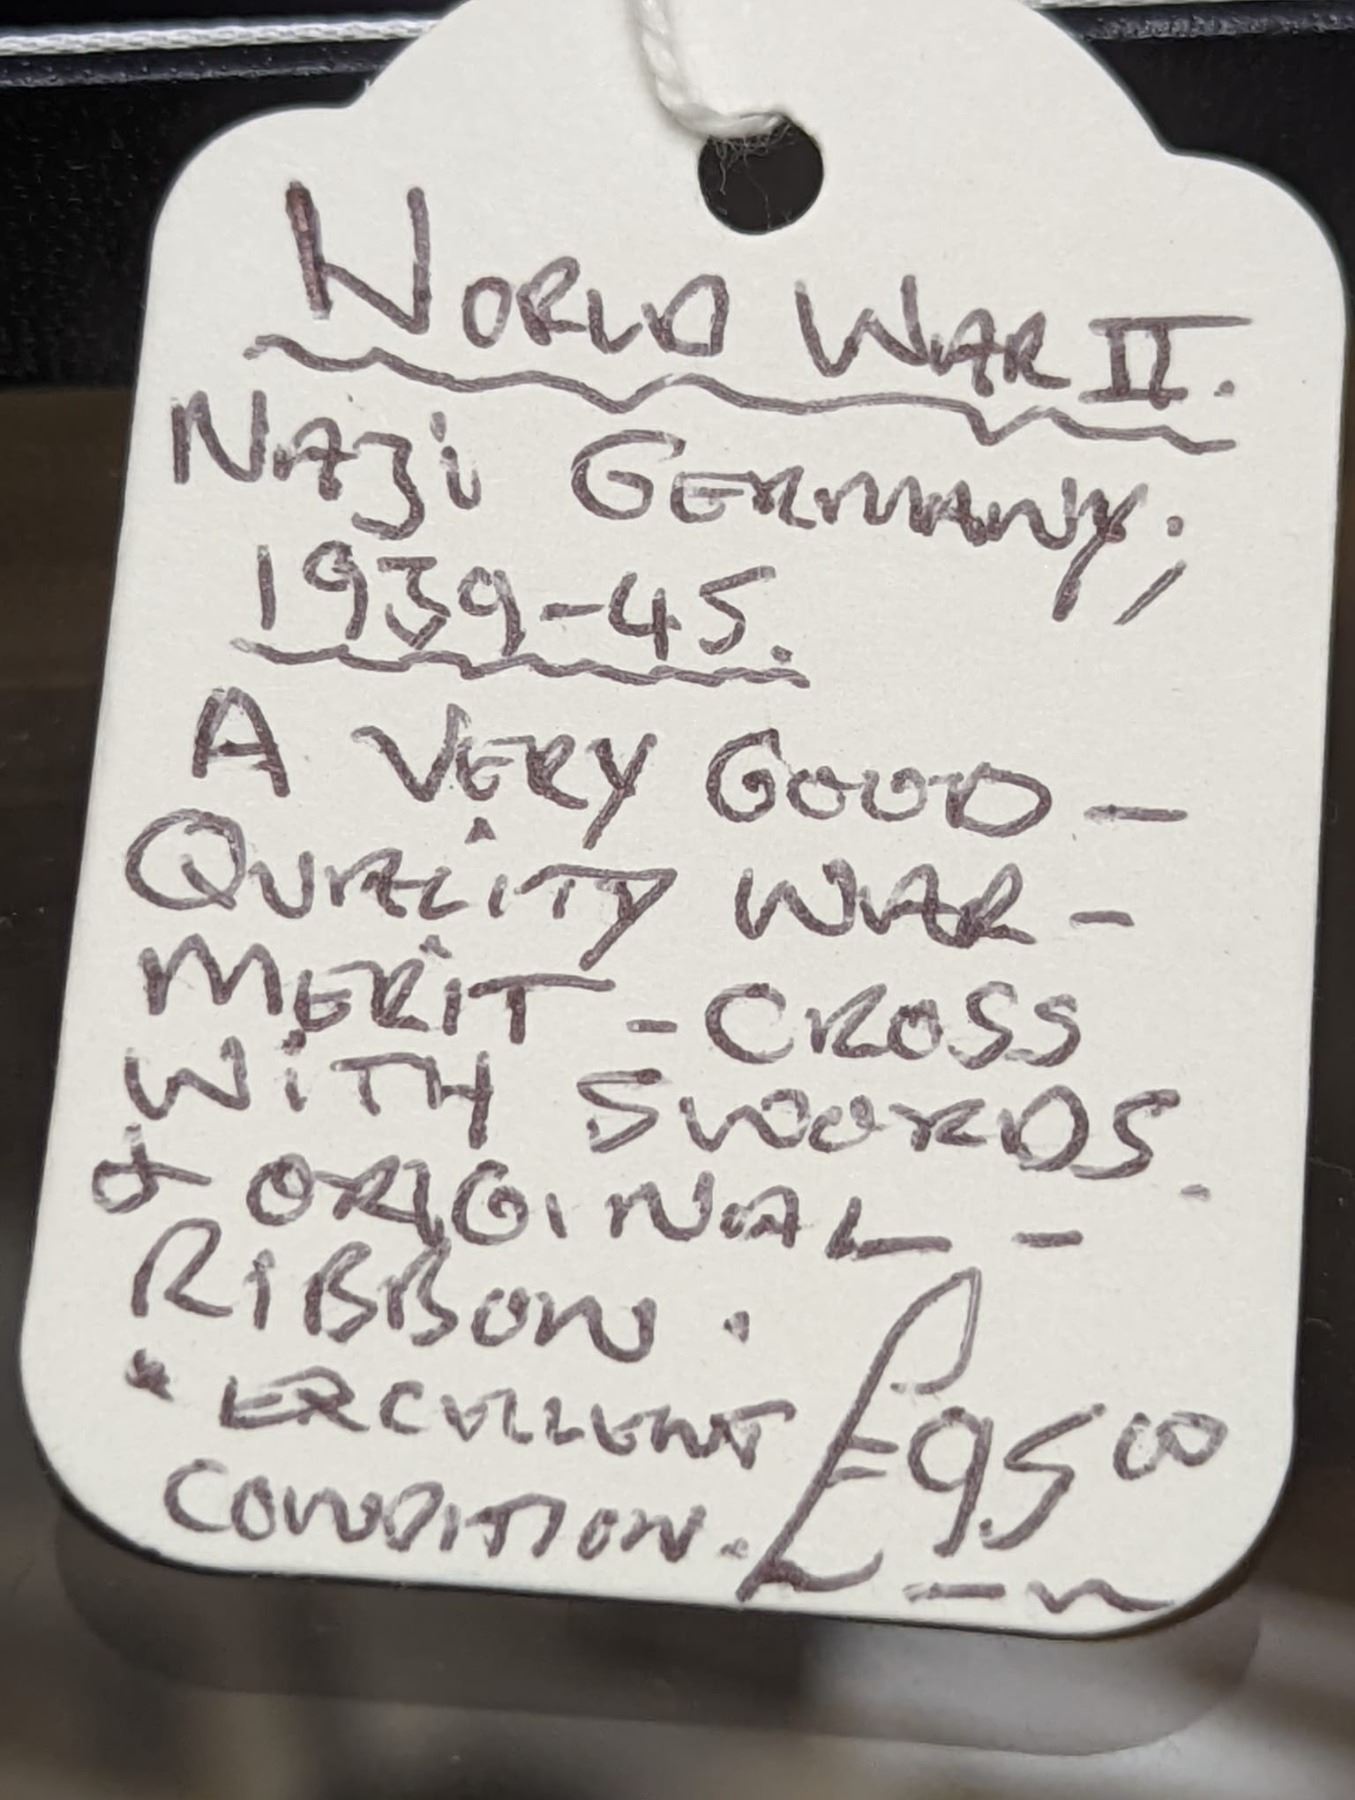 WORLD WAR II.
NAZi GERMANY;
1939-45.
A VERY GOOD -
QUALITY WAR -
MERIT - CROSS
WiTH SWORDS.
& ORIGINAL -
RIBBON.
* EXCELLENT
CONDITION. £95 00